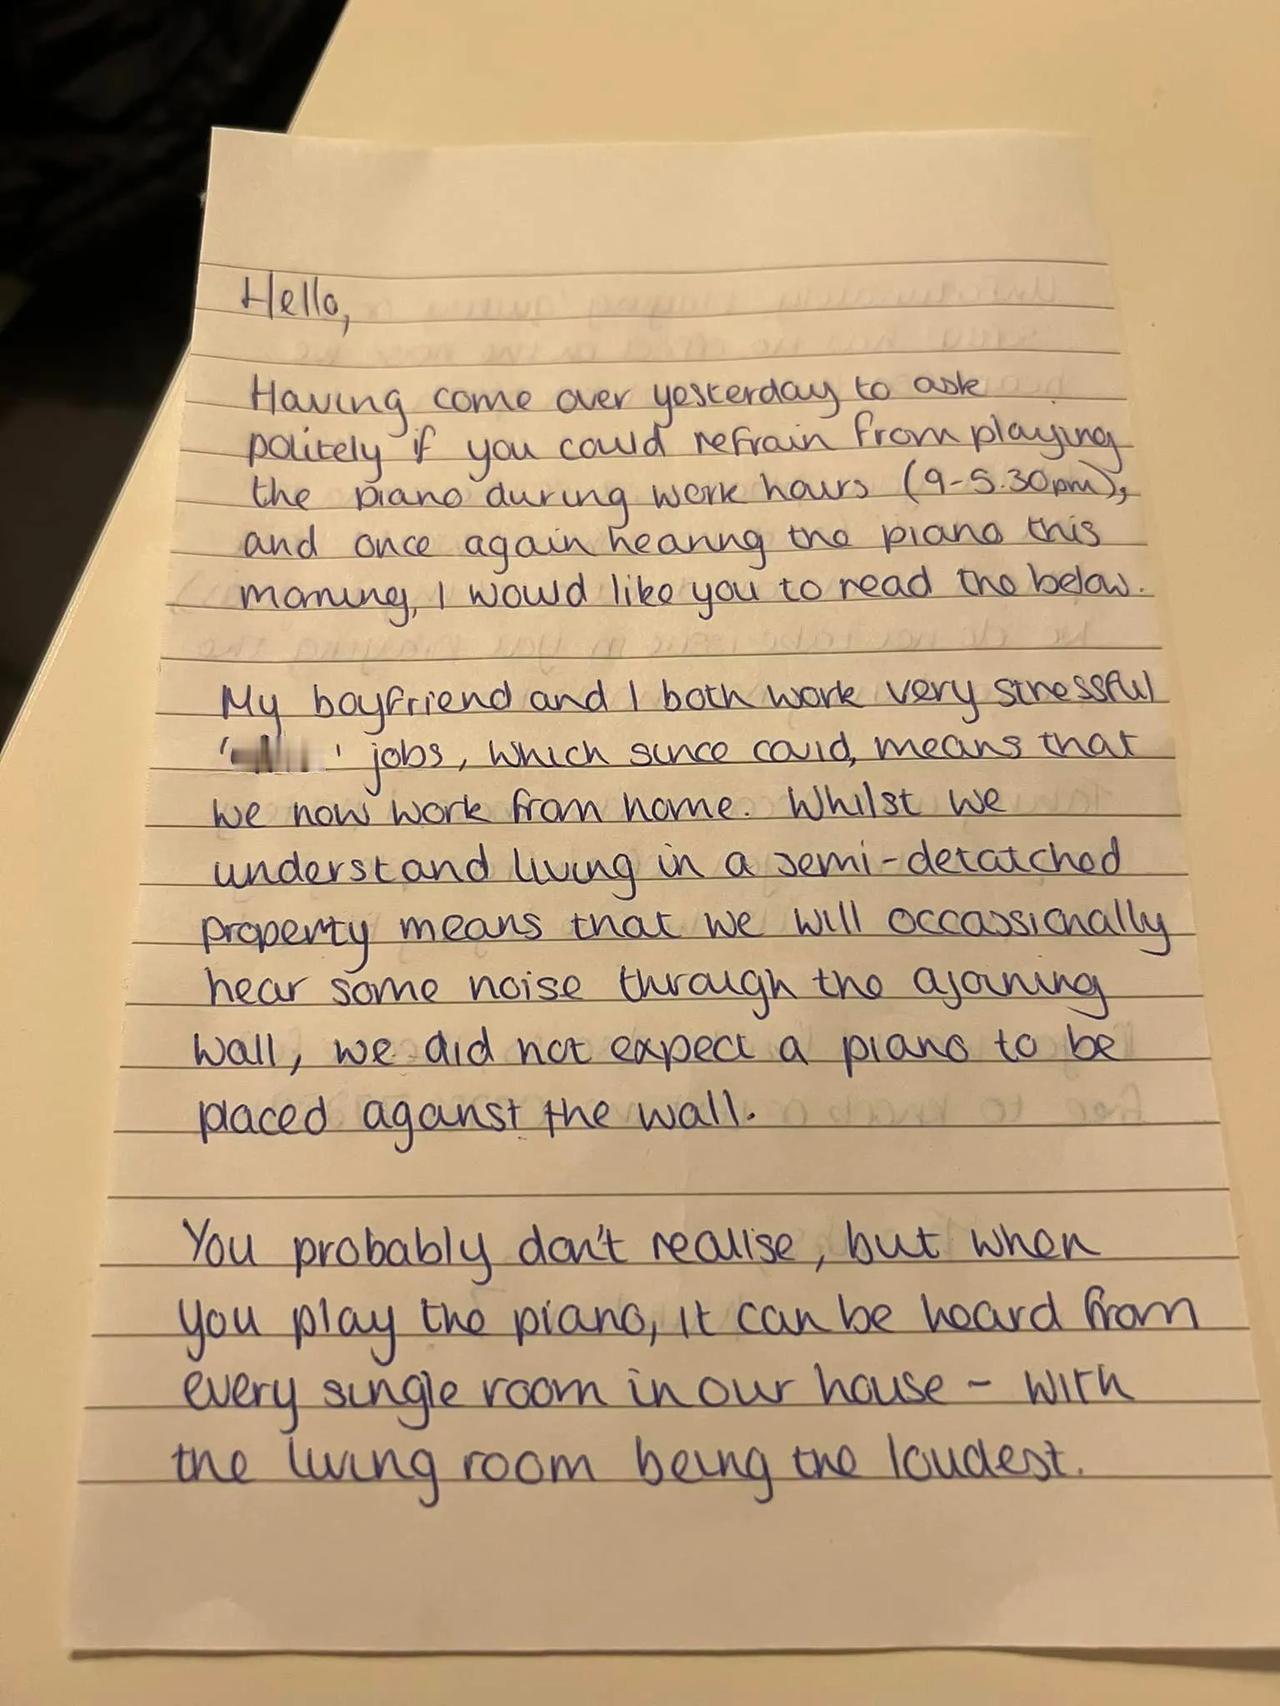 Hello,
Having come over yesterday to ask
politely if you could refrain from playing
the piano during work hours (9-5.30pm),
and once again hearing the piano this
morning, I would like you to read the below.
My boyfriend and I both work very stressful
' ' jobs, which since covid, means that
we now work from home. Whilst we
understand living in a semi-detatched
property means that we will occassionally
hear some noise through the ajoining
wall, we did not expect a piano to be
placed against the wall.
You probably don't realise, but when
you play the piano, it can be heard from
every single room in our house - with
the living room being the loudest.